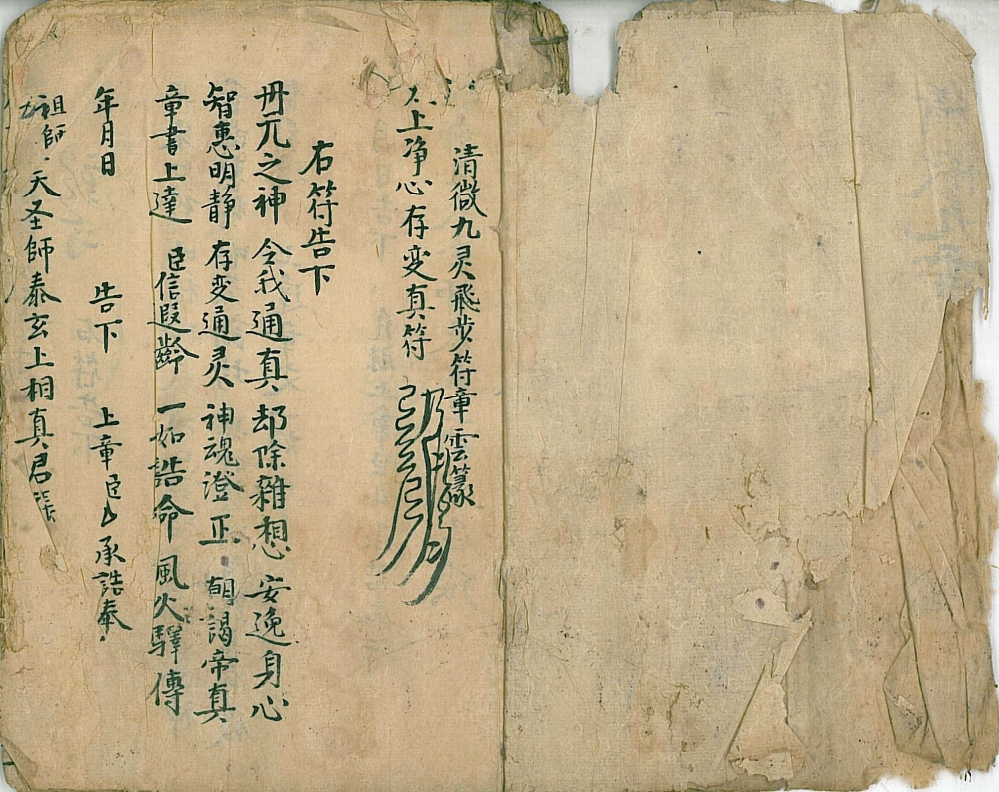 清微九灵飛步符章雲篆
太上净心存变真符
右符告下
丹元之神 令我通真 却除雜想 安逸身心
智惠明静 存变通灵 神魂澄正 朝謁帝真
章書上達 臣信遐齡 一如誥命 風火驛傳
年月日 告下 上章臣 承誥奉
祖師 天圣師泰玄上相真君張